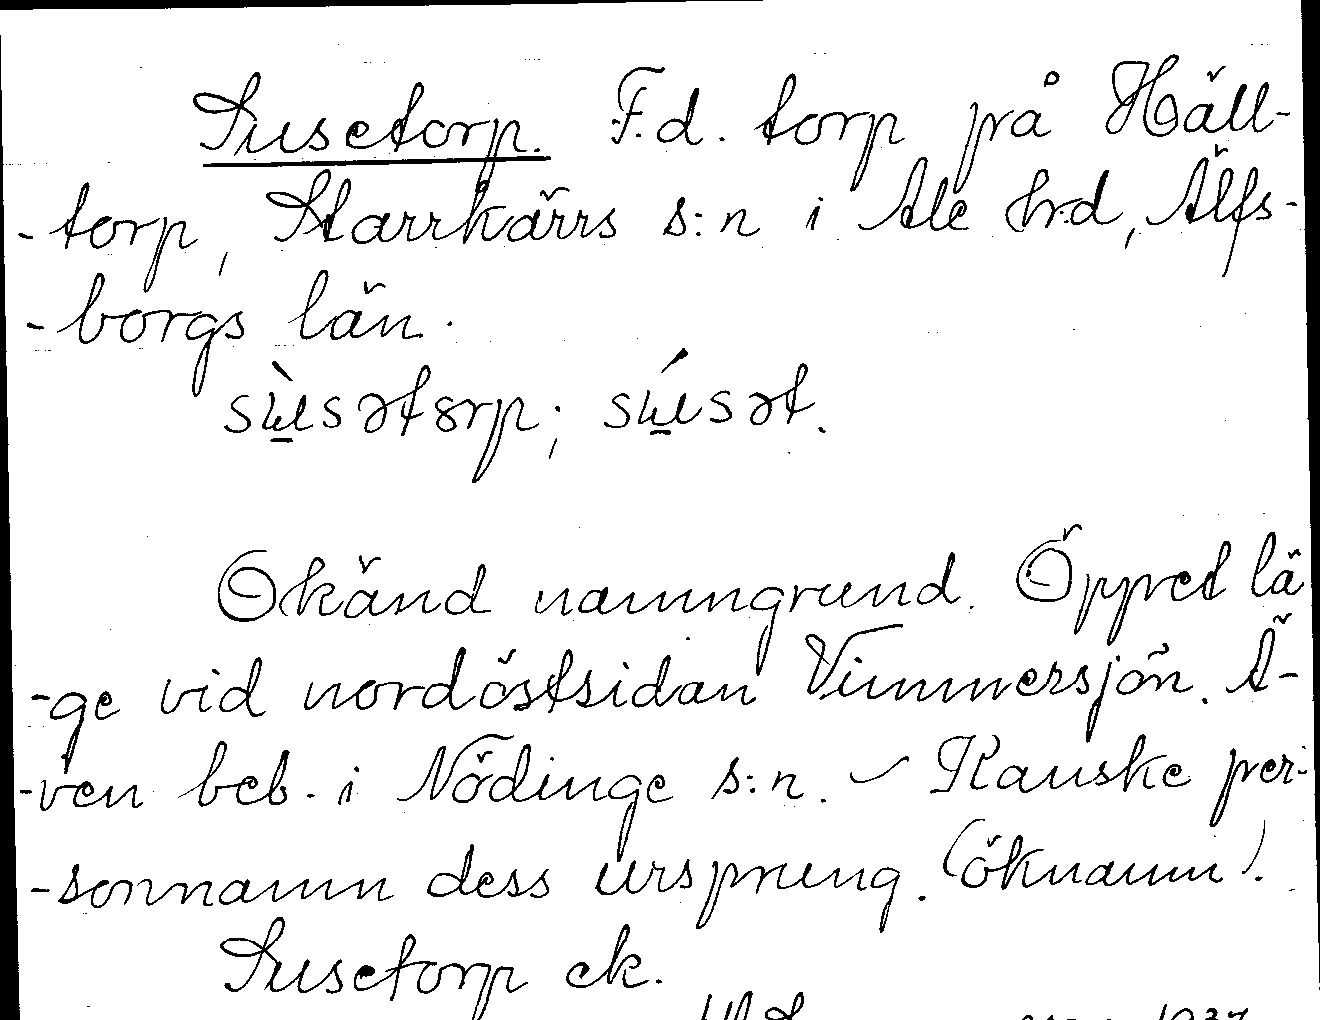 Susetorp. F.d. torp på Häll-
-torp, Starrkärrs s:n i Ale hrd, Älfs-
-borgs län.
sùsətorp; súsət.
Okänd namngrund. Öppet lä
-ge vid nordöstsidan Vimmersjön. Ä-
-ven beb. i Nödinge s:n. – Kanske per-
-sonnamn dess ursprung. (öknamn).
Susetorp ek.
1937